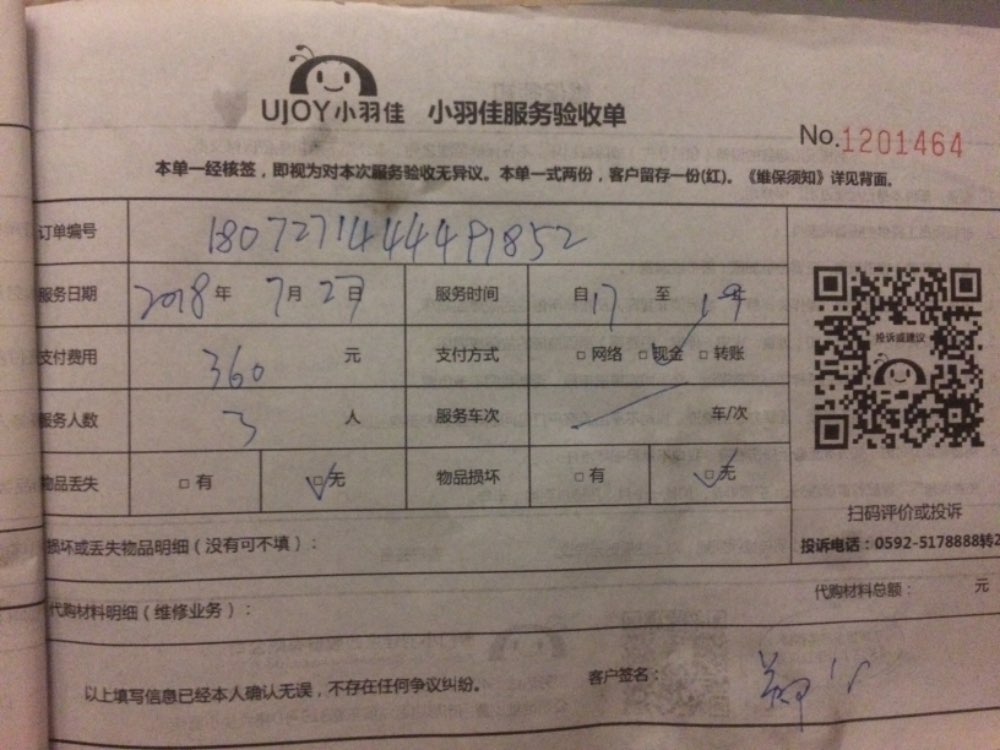 UJOY小羽佳 小羽佳服务验收单
No.1201464
本单一经核签，即视为对本次服务验收无异议。本单一式两份，客户留存一份(红)。《维保须知》详见背面。
订单编号 1807271444491852
服务日期 2018年 7月 27日 服务时间 自17 至 19
支付费用 360 元 支付方式 □ 网络 □ 现金 □ 转账
服务人数 3 人 服务车次 车/次
物品丢失 □ 有 □ 无 物品损坏 □ 有 □ 无
投诉或建议
扫码评价或投诉
投诉电话：0592-5178888转2
损坏或丢失物品明细（没有可不填）：
代购材料明细（维修业务）： 代购材料总额： 元
以上填写信息已经本人确认无误，不存在任何争议纠纷。 客户签名：